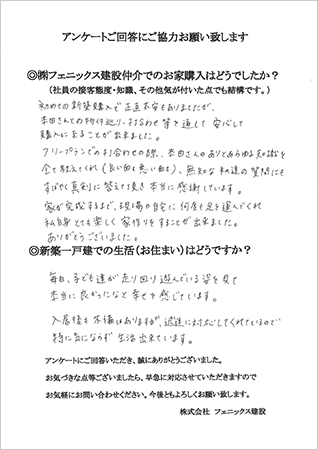 アンケートご回答にご協力お願い致します
◎㈱フェニックス建設仲介でのお家購入はどうでしたか？
（社員の接客態度・知識、その他気が付いた点でも結構です。）
初めての新築購入で正直不安もありましたが、
本田さんとの物件巡り、打合わせ等を通して安心して
購入に至ることが出来ました。
フリープランでのお打合わせの際、本田さんのありとあらゆる知識を
全て教えてくれ（良い面も悪い面も）、無知な私達の質問にも
すばやく真剣に答えて頂き本当に感謝しています。
家が完成するまで、現場や自宅に何度も足を運んでくれ
私自身とても楽しく家作りをすることが出来ました。
ありがとうございました。
◎新築一戸建での生活（お住まい）はどうですか？
毎日、子ども達が走り回り遊んでいる姿を見て
本当に良かったなと幸せを感じています。
入居後も不備はありますが、迅速に対応してくれているので
特に気にならず生活出来ています。
アンケートにご回答いただき、誠にありがとうございました。
お気づきな点等ございましたら、早急に対応させていただきますので
お気軽にお問い合わせください。今後ともよろしくお願い致します。
株式会社 フェニックス建設